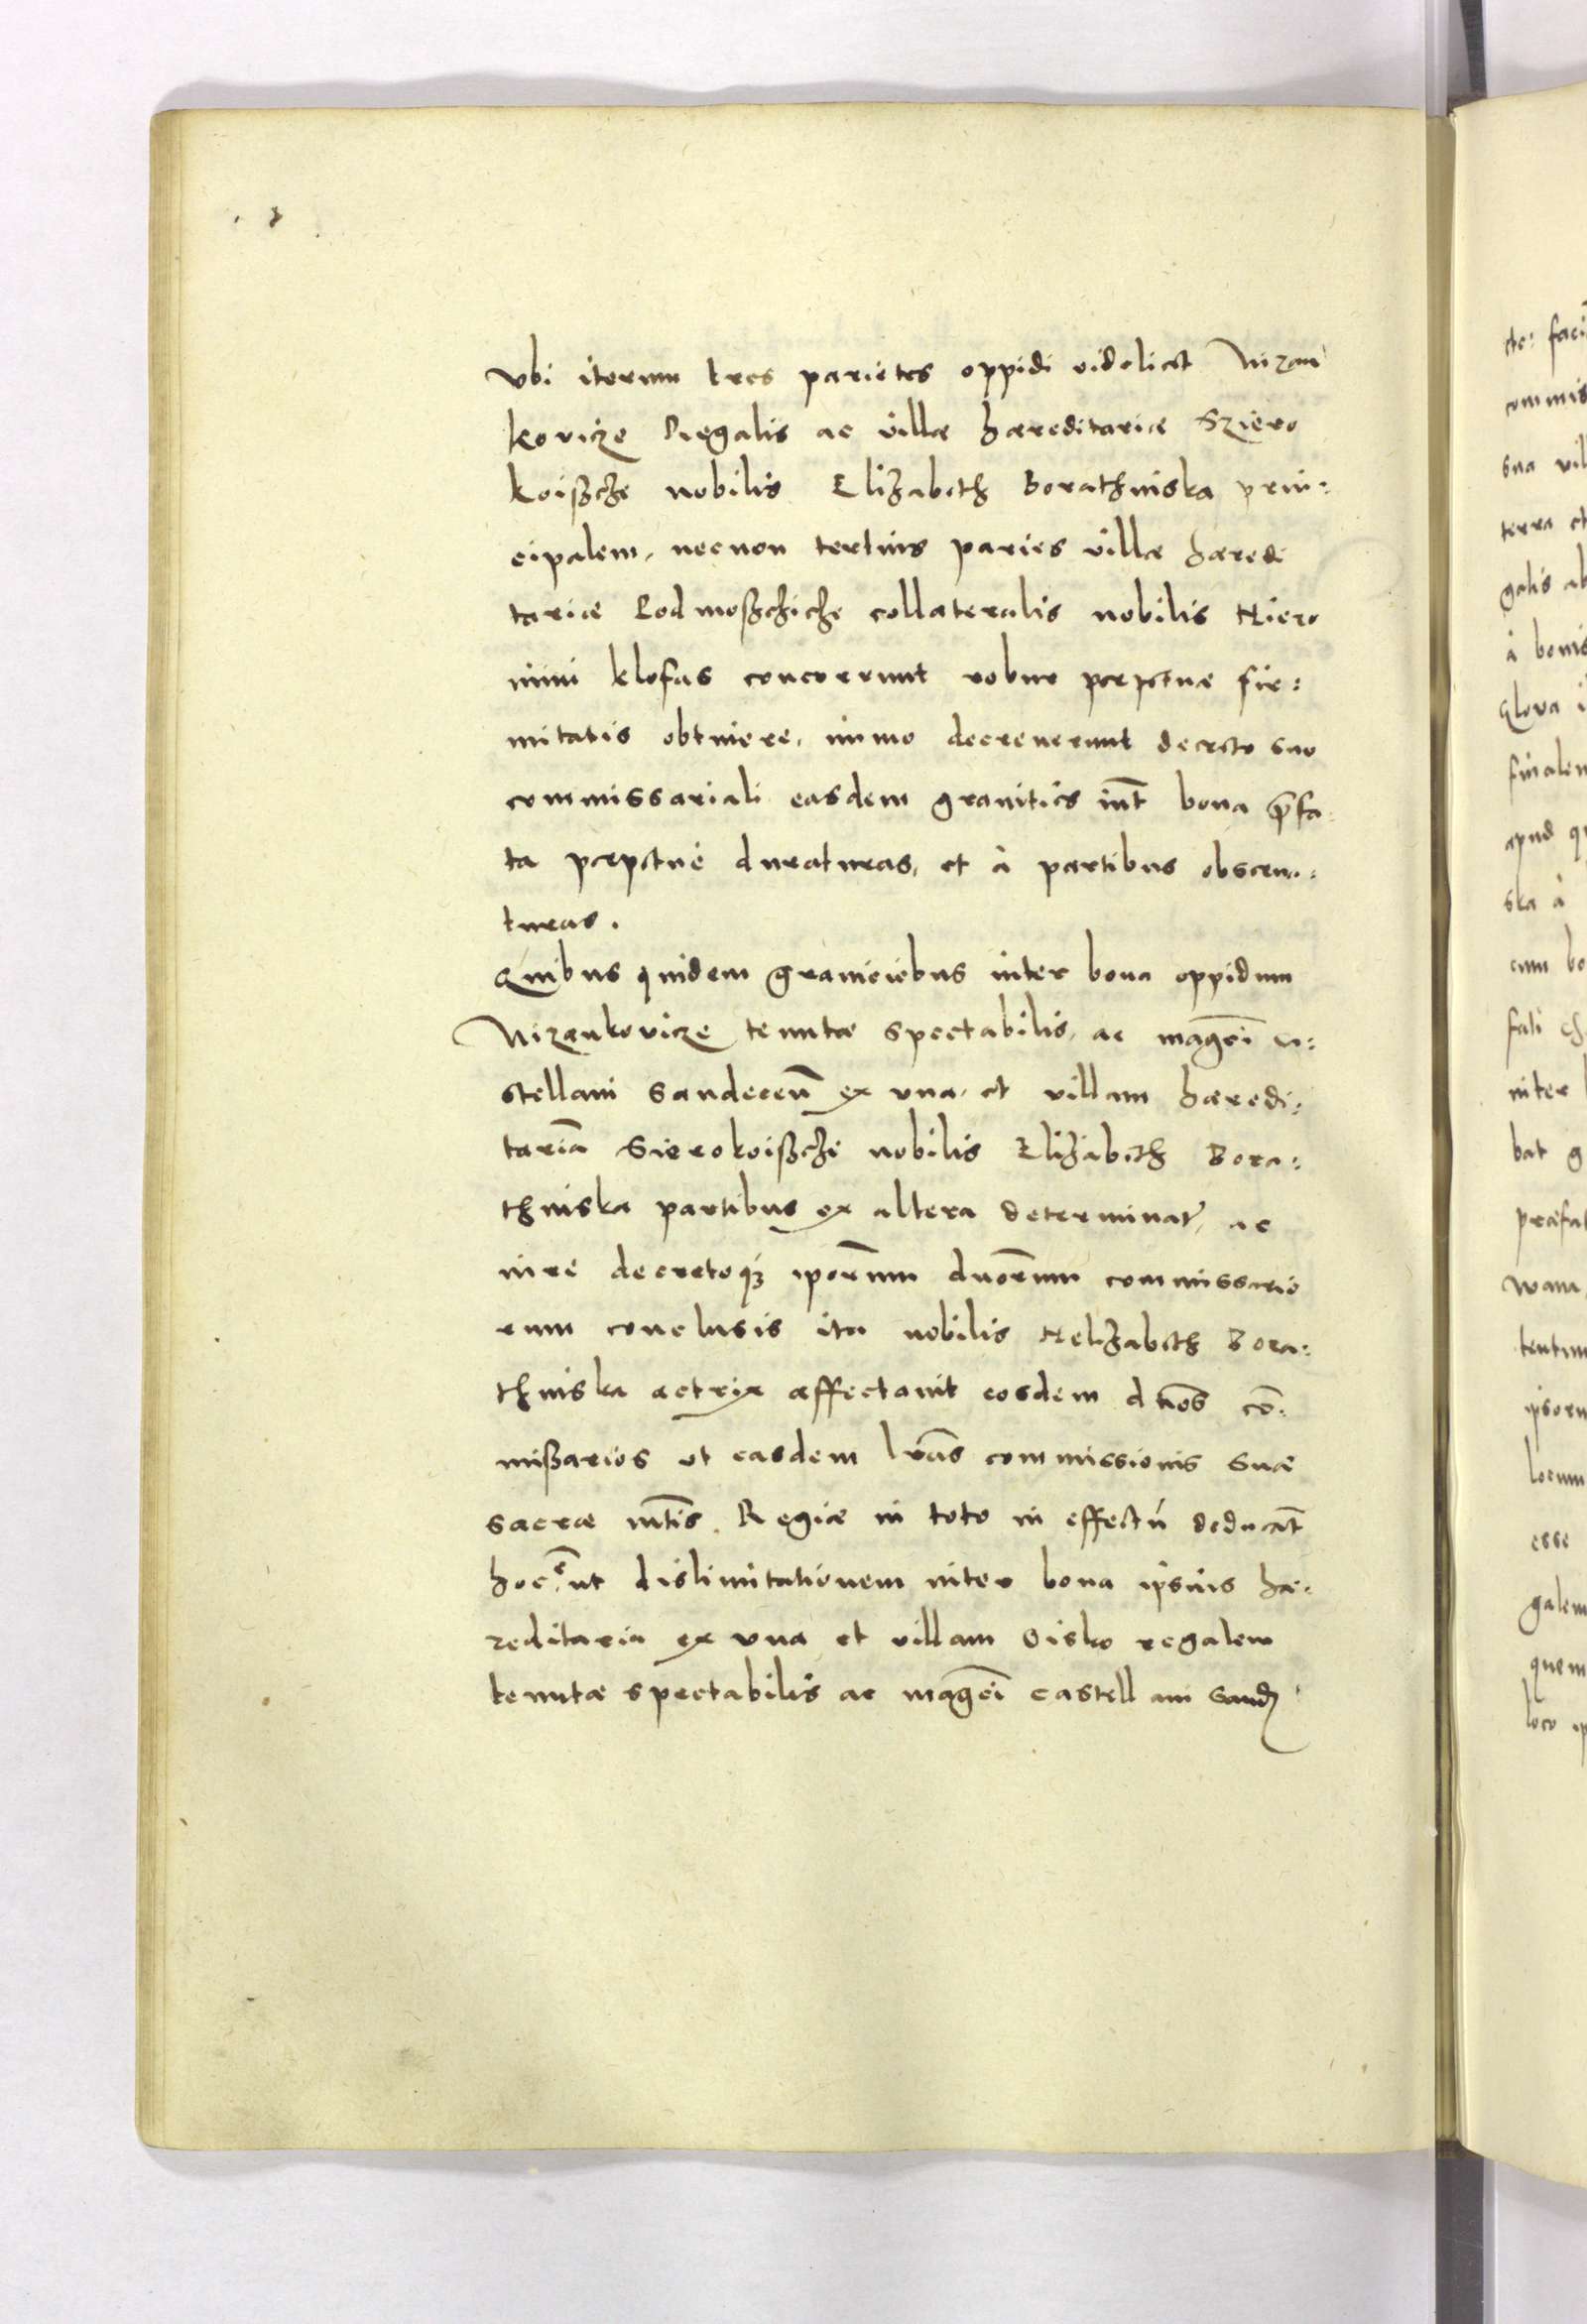 Vbi iterum tres parietes oppidi videlicet Nizan
kovicze Regalis ac villæ hæreditariæ Sziero
koißche nobilis Elizabeth Borathinska prin:
cipalem, necnon tertius paries villæ hæredi
tariæ Podmoßchiche collateralis nobilis Hiero
nimi Klofas concererunt robur perpetuæ fir:
mitatis obtinere, immo decreverunt decreto suo
commissariali easdem granities int̄ bona p̄fa
ta perpetuè duraturas, et à partibus obserua:
turas.
Quibus quidem granieiebus inter bona oppidum
Nizankovicze tenutæ spectabilis, ac mag̅ci ca:
stellani Sandecen̄ ex vna, et villam hæredi:
tariā Sierokoißche nobilis Elizabeth Bora:
thinska partibus ex altera determinat̄, ac
iure decretoq₃ ipōrum duōrum commissario
rum conclusis ita nobilis Helizabeth Bora:
thinska actrix affectauit eosdem dn̄os cō:
mißarios vt easdem lr̄as commissionis suæ
sacræ mt̄is Regiæ in toto in effectū deducāt
hoc ē: ut dislimitationem inter bona ipsius hæ:
reditaria ex vna et villam Sisko regalem
tenutæ spectabilis ac mag̅ci castellani Sand
de: faci
commis
sua vil
terra et
galis ab
à bonis
finalem
apud
ska à
cum bo
fati
inter
bat g
præfat
wam
ipsoru
locum
esse
galem
quem
loco ip